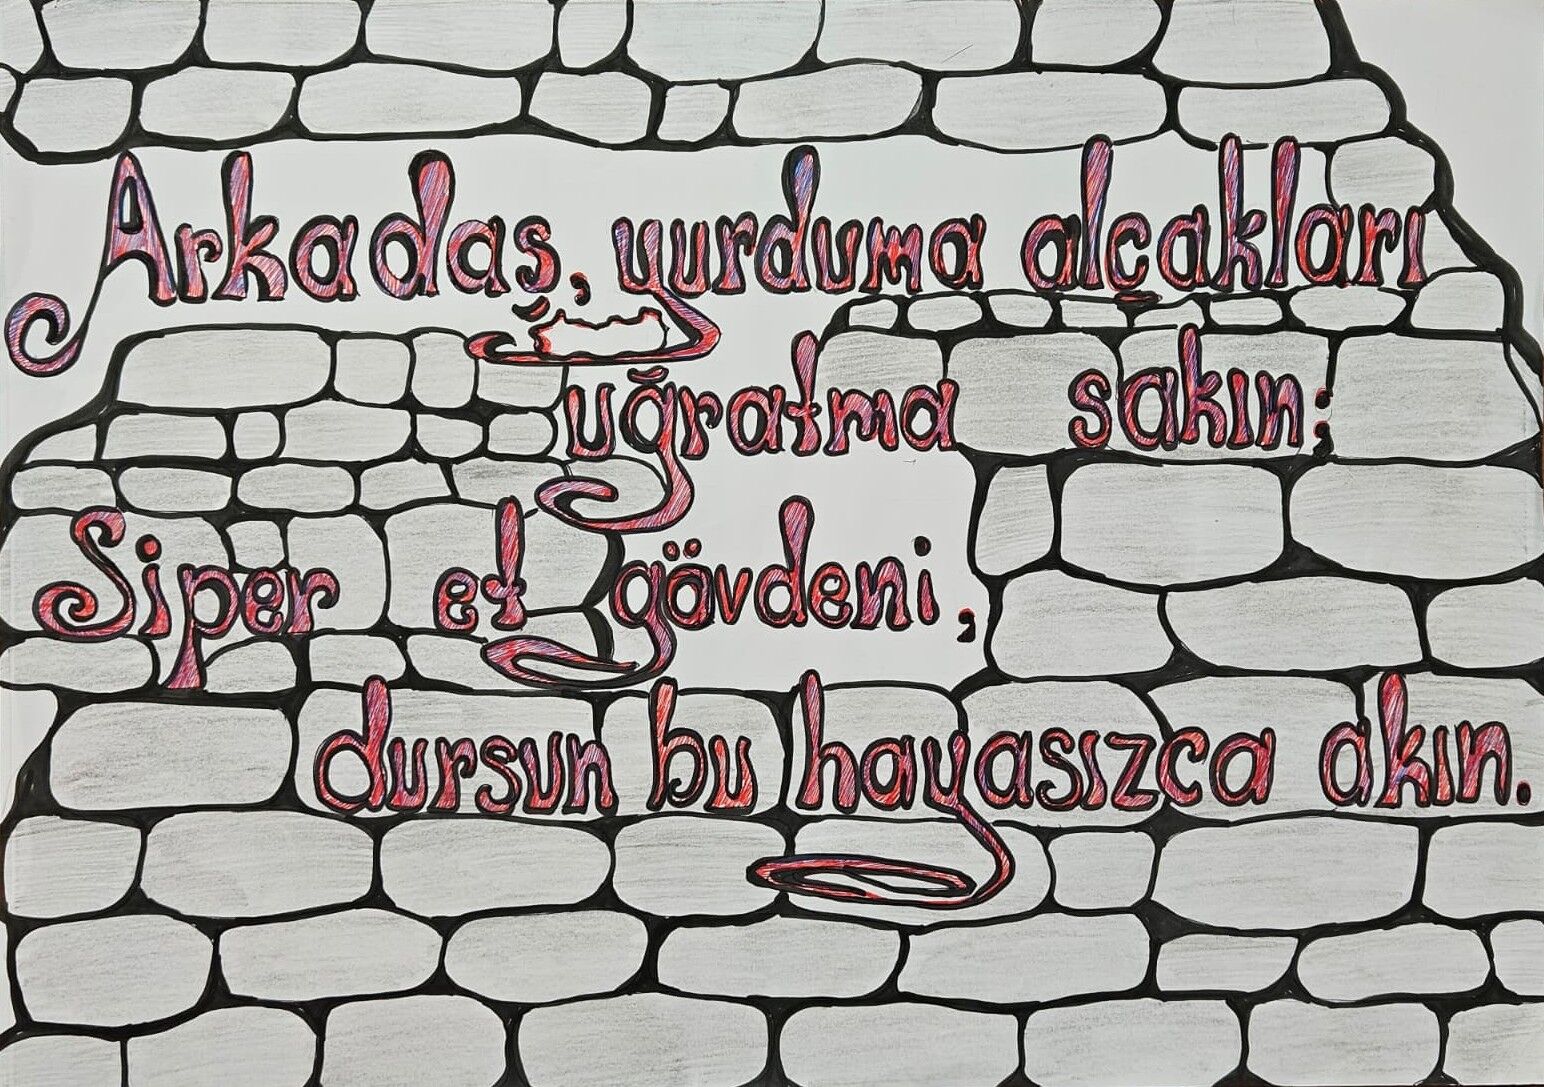 Arkadaş, yurduma alçakları
uğratma sakın;
Siper et gövdeni,
dursun bu hayasızca akın.